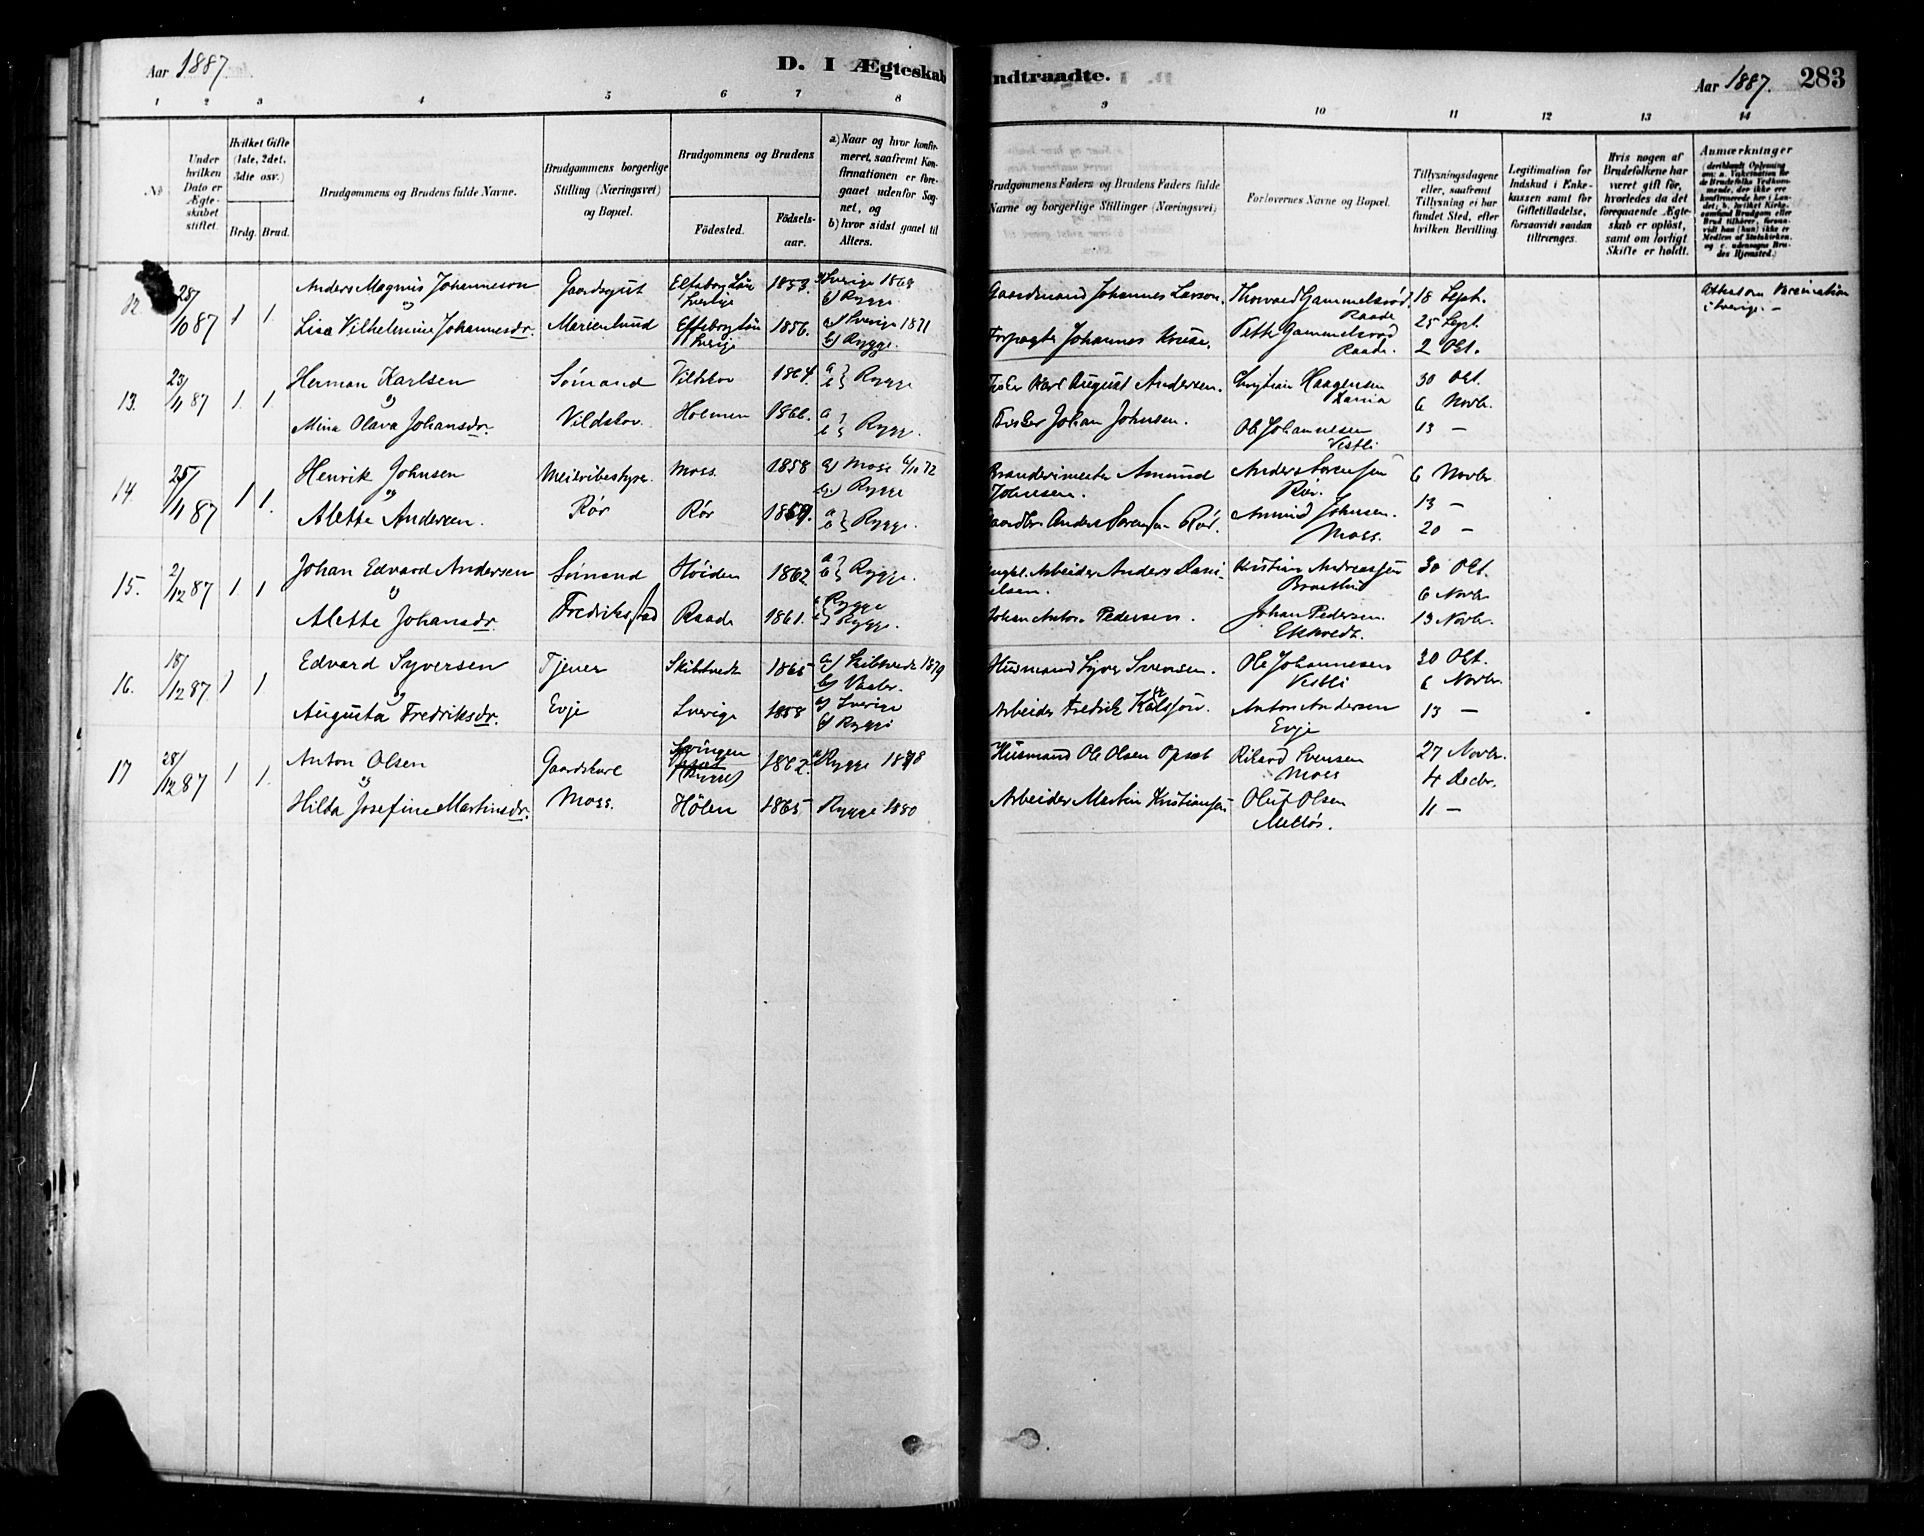 Aar 1887.
D. I Ægteskab
Indtraadte.
Aar 1887. 283
1 2 3 4 5 6 7 8 9 10 11 12 13 14
No
Under hvilken Dato er Ægteskabet stiftet.
Hvilket Gifte (1ste, 2det, 3die osv.)
Brdg. Brud.
Brudgommens og Brudens fulde Navne.
Brudgommens borgerlige Stilling (Næringsvei) og Bopæl.
Brudgommens og Brudens
Födested.
Födselsaar.
a) Naar og hvor konfirmeret, saafremt Konfirmationen er foregaaet udenfor Sognet, og
b) hvor sidst gaaet til Alters.
Brudgommens Faders og Brudens Faders fulde Navne og borgerlige Stillinger (Næringsvei)
Forlovernes Navne og Bopæl.
Tillysningsdagene eller, saafremt Tillysning ei har fundet Sted, efter hvilken Bevilling.
Legitimation for Indskud i Enkekassen samt for Giftetilladelse, forsaavidt saadan tiltrænges.
Hvis nogen af Brudefolkene har været gift för, hvorledes da det foregaaende Ægteskab er oplöst, samt om lovligt Skifte er holdt.
Anmærkninger
12. 28/10 87 1 1. Anders Magnus Johanneson Gaardsgut Elfsborg Län Sverige 1853. a) Sverige 1869 b) Rygge Gaardmand Johannes Larson. Thorvald Gammelsröd, Raade 18 Sept. Attest om Vaccination i Sverige. –
og
Lisa Vilhelmine Johannesdr. Marienlund Elfsborg Län Sverige 1856. a) Sverige 1871 b) Rygge. Forpagter Johannes Kruse. Peth Gammelsröd Raade. 25 Sept. 2 Okt.
13. 23/11 87 1. 1. Herman Karlsen Sömand Vildskov 1864. a b } Rygge Fisker Karl August Andersen. Kristian Haagensen Larvia 30 Okt.
og 6 Novbr.
Mina Olava Johansdr. Vildskov. Holmen 1866. a b } Rygge. Fisker Johan Johnsen. Ole Johannesen Vestli 13 –
14 25/11 87 1 1. Henrik Johnsen Meieribestyrer. Moss 1858 a) Moss 6/10 72 b) Rygge Brandmester Amund Johnsen. Anders Sörensen Rör. 6 Novbr.
og 13 –
Alette Andersen. Rör Rör 1859. a b } Rygge. Gaardbr. Anders Sörensen Rör. Amund Johnsen. Moss. 20 –
15. 2/12 87 1. 1 Johan Edvard Andersen Sömand Höiden 1862 a b } Rygge. Arbeider Anders Danielsen. Kristian Andreassen 30 Okt.
og 6 Novbr
Alette Johansdr. Fredriksstad Raade 1861. a) Rygge b) Rygge. Johan Anton Pedersen. Johan Pedersen. Ekholdt. 13 Novbr.
16. 18/12 87. 1 1 Edvard Syversen Tjener Skibtvedt 1865 a) Skibtvedt 1879 b) Vaaler. Husmand Syver Svensen. Ole Johannesen Vestli 30 Okt.
og 6 Novbr.
Augusta Fredriksdr. Evje Sverige 1858 a) Sverige b) Rygge Arbeider Fredrik Karlsson. Anton Andersen Evje 13 –
17 28/12 87 1 1. Anton Olsen Gaardskarl Svingen (Rygge) 1862. a) Rygge 1878 Husmand Ole Olsen Opsæt Rikard Svensen Moss 27 Novbr.
og 4 Decbr.
Hilda Josefine Martinsdr. Moss. Hölen 1865 Rygge 1880 Arbeider Martin Kristiansen Oluf Olsen Melløs. 11 –